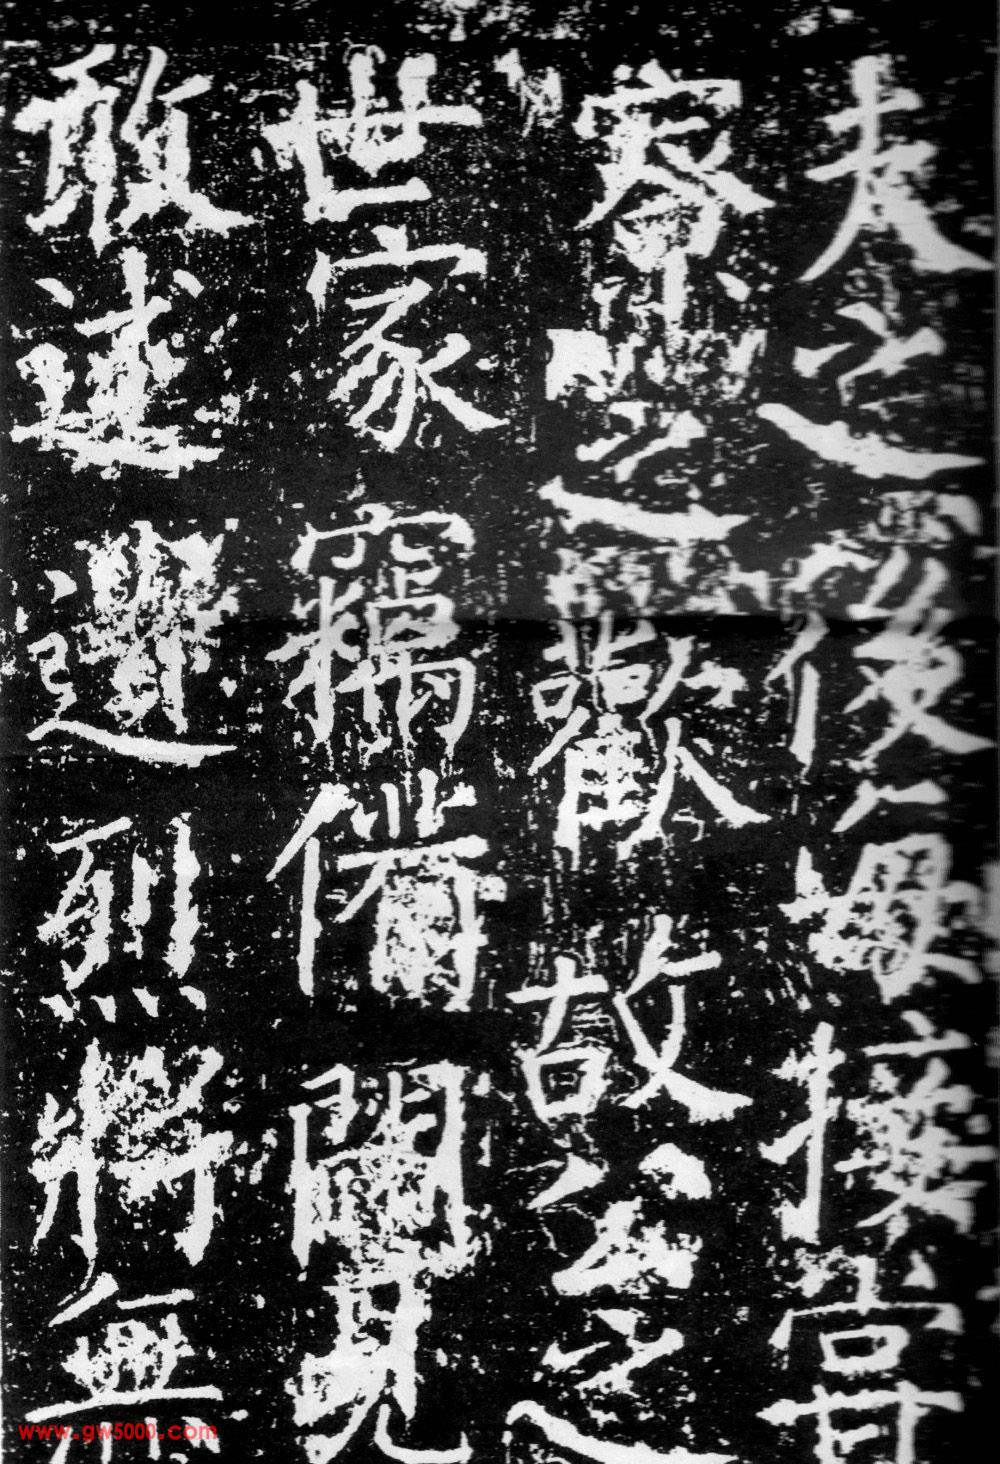 夫之後每接甞
察之歡故公之
世家竊備聞見
敢述遺烈將無
www.gw5000.com